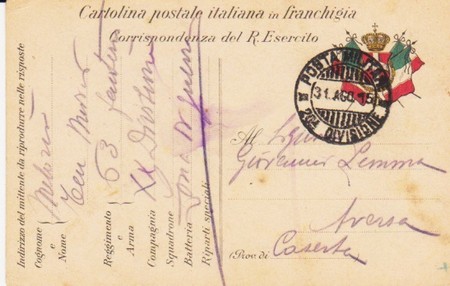 Cartolina postale italiana in franchigia
Corrispondenza del R. Esercito
POSTA MILITARE
31. AGO. 15
20ª DIVISIONE
Al Signor
Giovanni Lemma
Aversa
(Prov. di Caserta
Indirizzo del mittente da riprodurre nelle risposte
Cognome
e
Nome
Reggimento 63 Fanteria
e
Arma
Compagnia XX Divisione
Squadrone
Batteria Zona di guerra
Riparti speciali